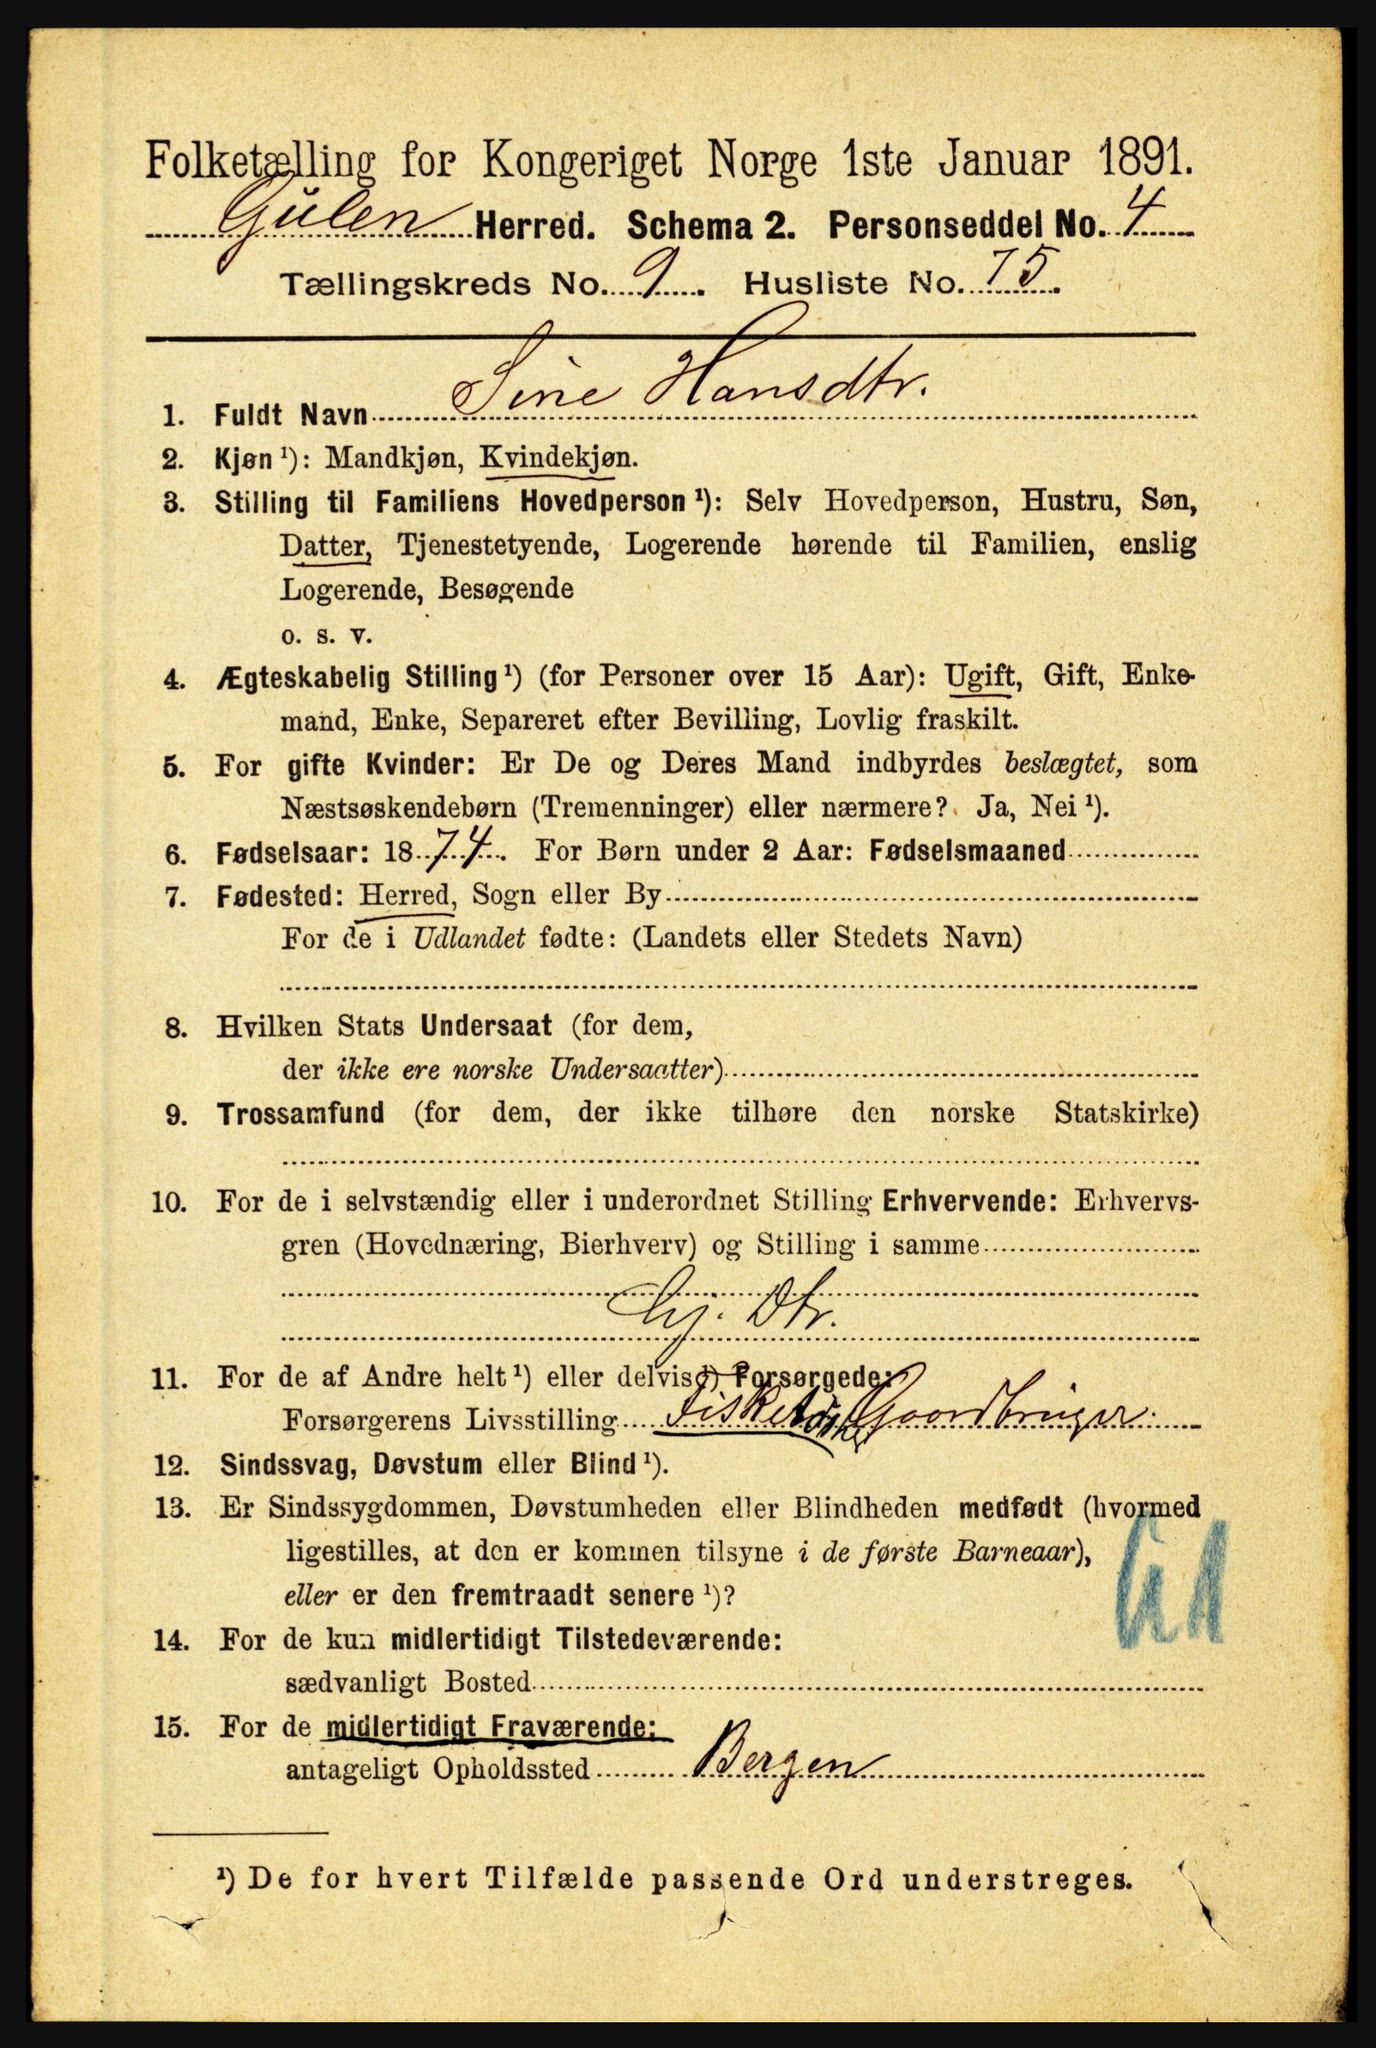 Folketælling for Kongeriget Norge 1ste Januar 1891.
Gulen Herred. Schema 2. Personseddel No. 4
Tællingskreds No. 9. Husliste No. 75.
1. Fuldt Navn Sine Hansdtr.
2. Kjøn ¹): Mandkjøn, Kvindekjøn.
3. Stilling til Familiens Hovedperson ¹): Selv Hovedperson, Hustru, Søn,
Datter, Tjenestetyende, Logerende hørende til Familien, enslig
Logerende, Besøgende
o. s. v.
4. Ægteskabelig Stilling ¹) (for Personer over 15 Aar): Ugift, Gift, Enke-
mand, Enke, Separeret efter Bevilling, Lovlig fraskilt.
5. For gifte Kvinder: Er De og Deres Mand indbyrdes beslægtet, som
Næstsøskendebørn (Tremenninger) eller nærmere? Ja, Nei ¹).
6. Fødselsaar: 1874. For Børn under 2 Aar: Fødselsmaaned
7. Fødested: Herred, Sogn eller By
For de i Udlandet fødte: (Landets eller Stedets Navn)
8. Hvilken Stats Undersaat (for dem,
der ikke ere norske Undersaatter)
9. Trossamfund (for dem, der ikke tilhøre den norske Statskirke)
10. For de i selvstændig eller i underordnet Stilling Erhvervende: Erhvervs-
gren (Hovednæring, Bierhverv) og Stilling i samme
Gj. Dtr.
11. For de af Andre helt ¹) eller delvis ¹) Forsørgede:
Forsørgerens Livsstilling Gaardbruger.
12. Sindssvag, Døvstum eller Blind ¹).
13. Er Sindssygdommen, Døvstumheden eller Blindheden medfødt (hvormed
ligestilles, at den er kommen tilsyne i de første Barneaar),
eller er den fremtraadt senere ¹)?
14. For de kun midlertidigt Tilstedeværende:
sædvanligt Bosted
15. For de midlertidigt Fraværende:
antageligt Opholdssted Bergen
¹) De for hvert Tilfælde passende Ord understreges.